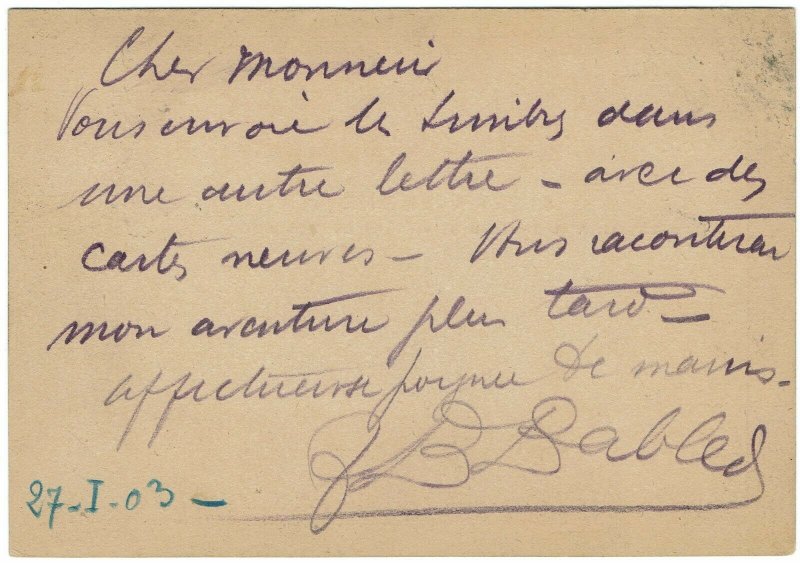 Cher Monsieur
Vous envoie les timbres dans
une autre lettre - avec des
cartes neuves - Vous raconterai
mon aventure plus tard -
Affectueuse poignée de mains -
JB Dabled
27-I-03 -